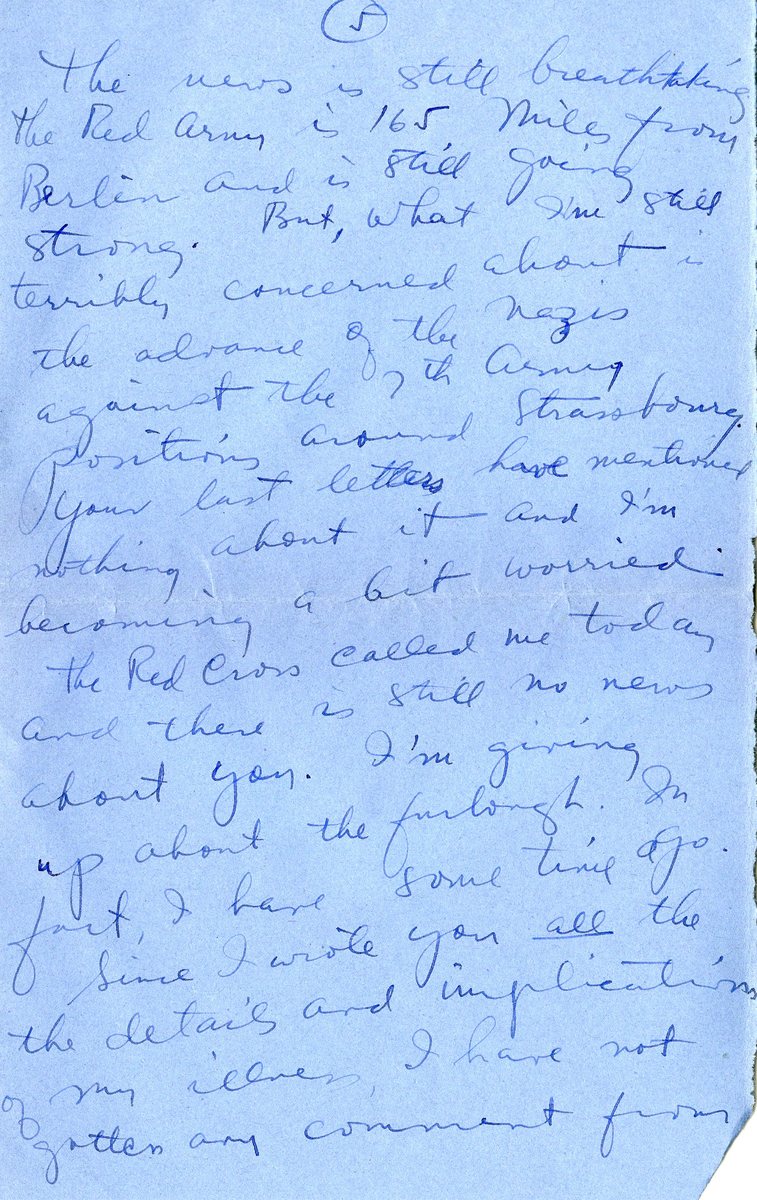 5
The news is still breathtaking
the Red Army is 165 miles from
Berlin and is still going
strong. But, what I'm still
terribly concerned about is
the advance of the Nazis
against the 7th Army
positions around Strassbourg.
Your last letters have mentioned
nothing about it and I'm
becoming a bit worried.
The Red Cross called me today
and there is still no news
about you. I'm giving
up about the furlough. In
fact, I have some time ago.
Since I wrote you all the
the details and implications
of my illness, I have not
gotten any comment from